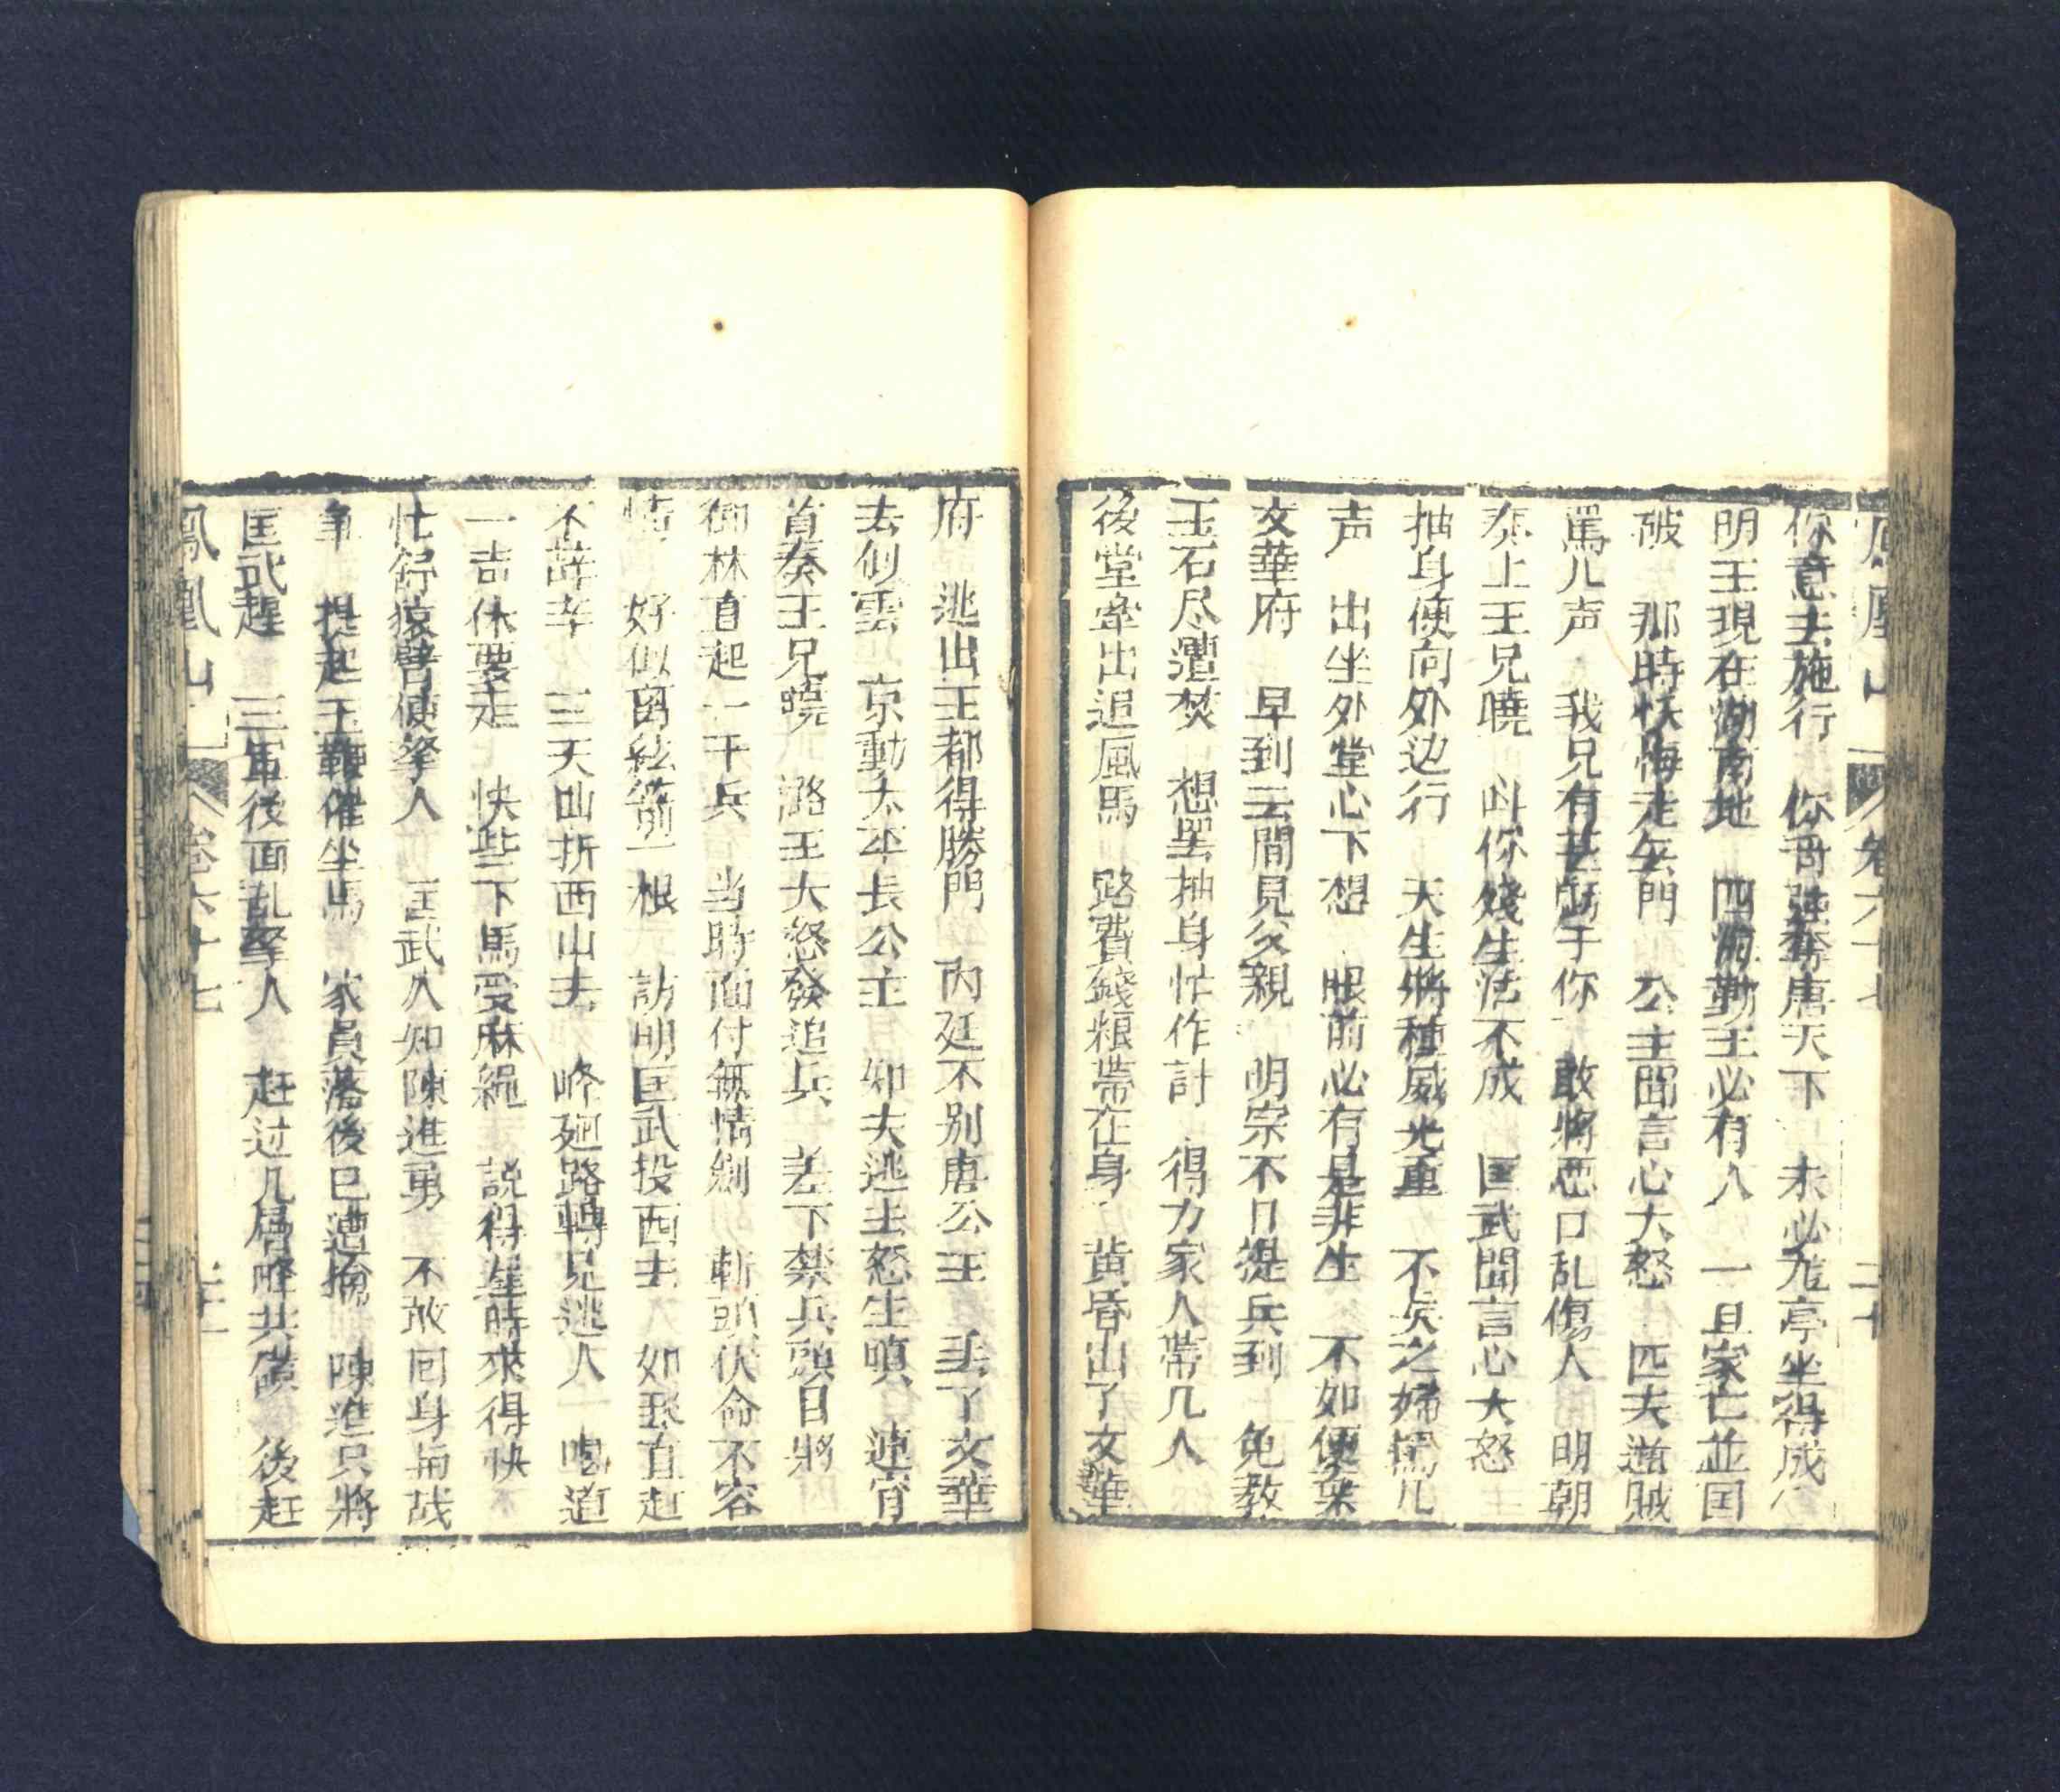 鳳凰山 卷六十七 二十
你意去施行 你哥強奪唐天下 未必龍亭坐得成
明王現在湖南地 四海勤王必有人 一旦家亡並国
破 那時恢悔走无門 公主聞言心大怒 匹夫逆賊
罵几声 我兄有甚虧于你 敢將恶口乱傷人 明朝
奏上王兄曉 呌你殘生活不成 匡武聞言心大怒
抽身便向外边行 天生將種威尤重 不矣之婦罵几
声 出坐外堂心下想 眼前必有是非生 不如便棄
文華府 早到云間見父親 明宗不日提兵到 免教
玉石尽遭焚 想罢抽身忙作計 得力家人帶几人
後堂牵出追風馬 路費錢粮帶在身 黄昏出了文華
府 逃出王都得勝門 内廷不别唐公主 丢了文華
去似雲 京動太平長公主 知夫逃去怒生嗔 連宵
首奏王兄曉 潞王大怒發追兵 差下禁兵頭目將
御林直起一千兵 当時面付無情劍 斬頭伏命不容
情 好似離絃箭一根 訪明匡武投西去 如飛直赶
不辞辛 三天山折西山去 峰廻路轉見逃人 喝道
一声休要走 快些下馬受麻繩 説得遲時來得快
忙舒猿臂便拏人 匡武久知陳進勇 不敢回身与战
争 提起玉鞭催坐馬 家員落後已遭擒 陳進只將
匡武趕 三軍後面乱拏人 赶过几層峰共嶺 後赶
鳳凰山 卷六十七